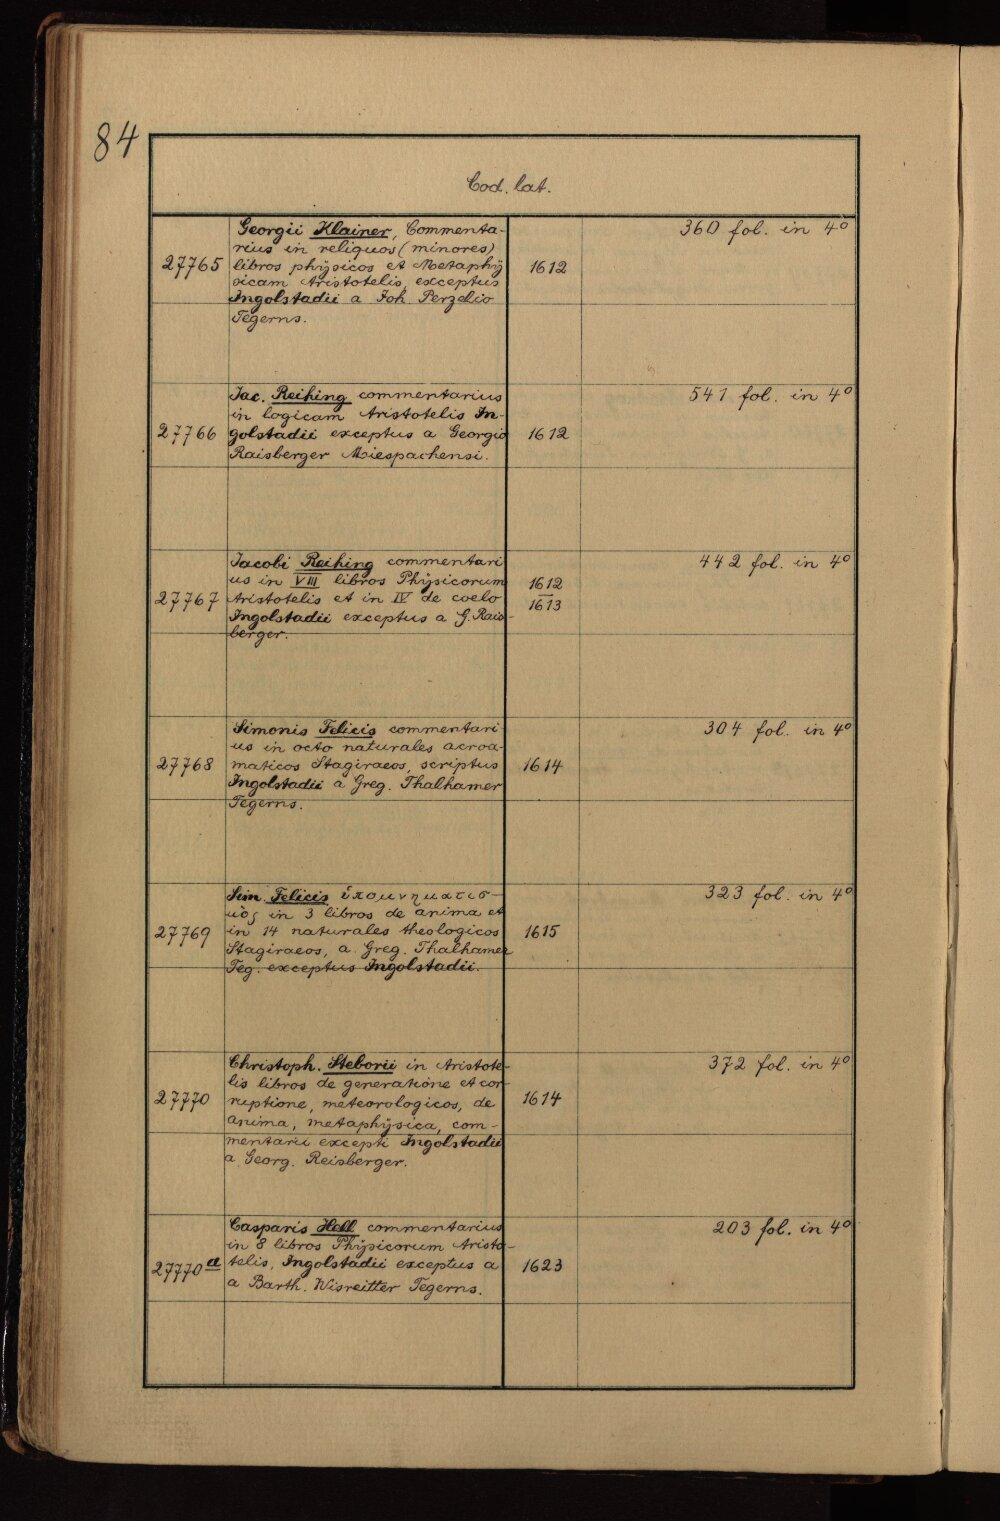 84
Cod. lat.
Georgii Klainer, Commenta-
rius in reliquos (minores)
27765 libros physicos et Metaphy 1612 360 fol. in 4°
sicam Aristotelis, exceptus
Ingolstadii a Joh. Perzelio
Tegerns.
Jac. Reihing commentarius 541 fol. in 4°
in logicam Aristotelis In-
27766 golstadii exceptus a Georgio 1612
Raisberger Miespachensi.
Jacobi Reihing commentari 442 fol. in 4°
us in VIII libros Physicorum 1612
27767 Aristotelis et in IV de coelo 1613
Ingolstadii exceptus a G. Rais-
berger.
Simonis Felicis commentari 304 fol. in 4°
us in octo naturales acroa-
27768 maticos Stagiraeos, scriptus 1614
Ingolstadii a Greg. Thalhamer
Tegerns.
Sim. Felicis ὑπομνηματισ- 323 fol. in 4°
μὸς in 3 libros de anima et
27769 in 14 naturales theologicos 1615
Stagiraeos, a Greg. Thalhamer
Teg. exceptus Ingolstadii.
Christoph. Steborii in Aristote- 372 fol. in 4°
lis libros de generatione et cor-
27770 ruptione, meteorologicos, de 1614
anima, metaphysica, com-
mentarii excepti Ingolstadii
a Georg. Reisberger.
Casparis Hell commentarius 203 fol. in 4°
in 8 libros Physicorum Aristo-
27770 a telis, Ingolstadii exceptus a 1623
a Barth. Wisreitter Tegerns.